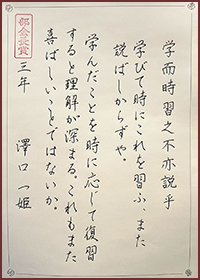 学而時習之不亦説乎
学びて時にこれを習ふ、また
説ばしからずや。
学んだことを時に応じて復習
すると理解が深まる。これもまた
喜ばしいことではないか。
三年 澤口 一姫